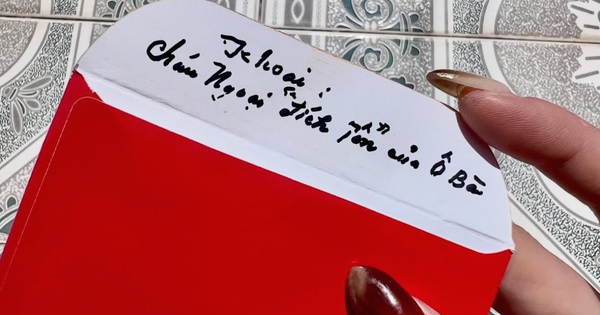 Khoai :
cháu Ngoại đích tôn của Ô Bà